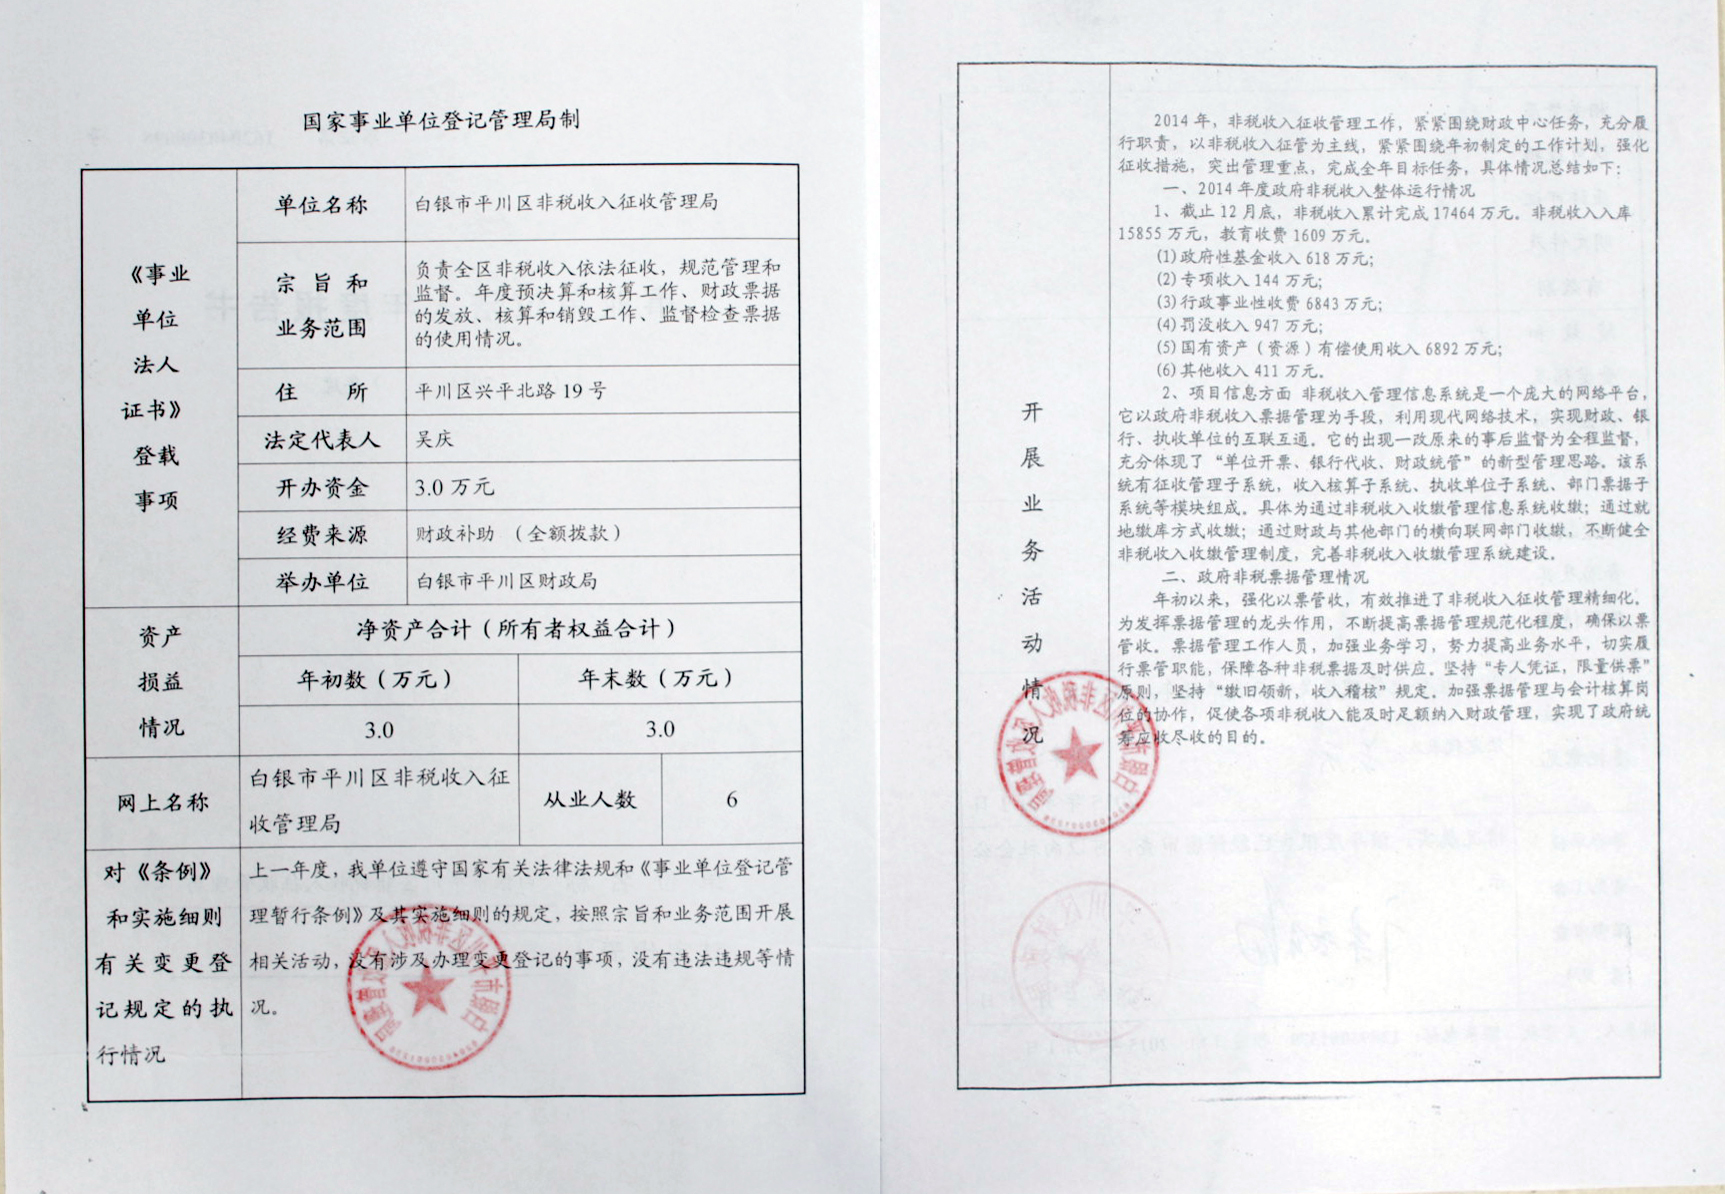 国家事业单位登记管理局制
《事业
单位
法人
证书》
登载
事项
单位名称
白银市平川区非税收入征收管理局
宗 旨 和
业务范围
负责全区非税收入依法征收，规范管理和
监督。年度预决算和核算工作、财政票据
的发放、核算和销毁工作、监督检查票据
的使用情况。
住 所
平川区兴平北路 19 号
法定代表人
吴庆
开办资金
3.0 万元
经费来源
财政补助 （全额拨款）
举办单位
白银市平川区财政局
资产
损益
情况
净资产合计（所有者权益合计）
年初数（万元）
年末数（万元）
3.0
3.0
网上名称
白银市平川区非税收入征
收管理局
从业人数
6
对《条例》
和实施细则
有关变更登
记规定的执
行情况
上一年度，我单位遵守国家有关法律法规和《事业单位登记管
理暂行条例》及其实施细则的规定，按照宗旨和业务范围开展
相关活动，没有涉及办理变更登记的事项，没有违法违规等情
况。
开
展
业
务
活
动
情
况
2014 年，非税收入征收管理工作，紧紧围绕财政中心任务，充分履
行职责，以非税收入征管为主线，紧紧围绕年初制定的工作计划，强化
征收措施，突出管理重点，完成全年目标任务，具体情况总结如下：
一、2014 年度政府非税收入整体运行情况
1、截止 12 月底，非税收入累计完成 17464 万元。非税收入入库
15855 万元，教育收费 1609 万元。
(1)政府性基金收入 618 万元；
(2)专项收入 144 万元；
(3)行政事业性收费 6843 万元；
(4)罚没收入 947 万元；
(5)国有资产（资源）有偿使用收入 6892 万元；
(6)其他收入 411 万元。
2、项目信息方面 非税收入管理信息系统是一个庞大的网络平台，
它以政府非税收入票据管理为手段，利用现代网络技术，实现财政、银
行、执收单位的互联互通。它的出现一改原来的事后监督为全程监督，
充分体现了“单位开票、银行代收、财政统管”的新型管理思路。该系
统有征收管理子系统，收入核算子系统、执收单位子系统、部门票据子
系统等模块组成。具体为通过非税收入收缴管理信息系统收缴；通过就
地缴库方式收缴；通过财政与其他部门的横向联网部门收缴，不断健全
非税收入收缴管理制度，完善非税收入收缴管理系统建设。
二、政府非税票据管理情况
年初以来，强化以票管收，有效推进了非税收入征收管理精细化。
为发挥票据管理的龙头作用，不断提高票据管理规范化程度，确保以票
管收。票据管理工作人员，加强业务学习，努力提高业务水平，切实履
行票管职能，保障各种非税票据及时供应。坚持“专人凭证，限量供票”
原则，坚持“缴旧领新，收入稽核”规定。加强票据管理与会计核算岗
位的协作，促使各项非税收入能及时足额纳入财政管理，实现了政府统
筹应收尽收的目的。